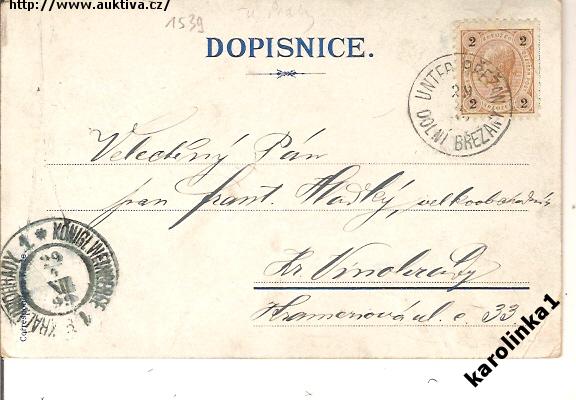 http://www.auktiva.cz/
1539 u Prahy
DOPISNICE.
2 2
2 2
UNTER BŘEŽAN
29
DOLNÍ BŘEŽANY
Velectěný Pán
pan Frant. Hladký, velkoobchodník
Kr. Vinohrady
Kramerióvá ul. č 33
KÖNIGL. WEINBERGE 1.
29
XII
99
KRÁL. VINOHRADY 1.
karolinka1